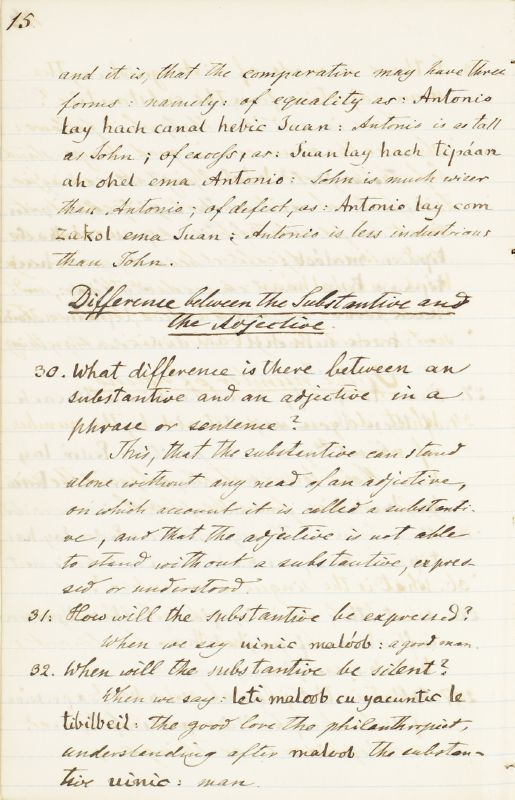 15
and it is, that the comparative may have three
forms: namely: of equality as: Antonio
lay hach canal hebic Juan: Antonio is as tall
as John; of excess, as: Juan lay hach tipáan
ah ohel ema Antonio: John is much wiser
than Antonio; of defect, as: Antonio lay com
zakol ema Juan: Antonio is less industrious
than John.
Difference between the Substantive and
the Adjective.
30. What difference is there between an
substantive and an adjective in a
phrase or sentense?
This, that the substantive can stand
alone without any need of an adjective,
on which account it is called a substanti-
ve, and that the adjective is not able
to stand without a substantive, expres-
sed or understood.
31: How will the substantive be expressed?
When we say uinic malóob: a good man.
32. When will the substantive be silent?
When we say: leti maloob cu yacuntic le
tibilbeil: the good love the philanthropist,
understanding after maloob the substan-
tive uinic: man.